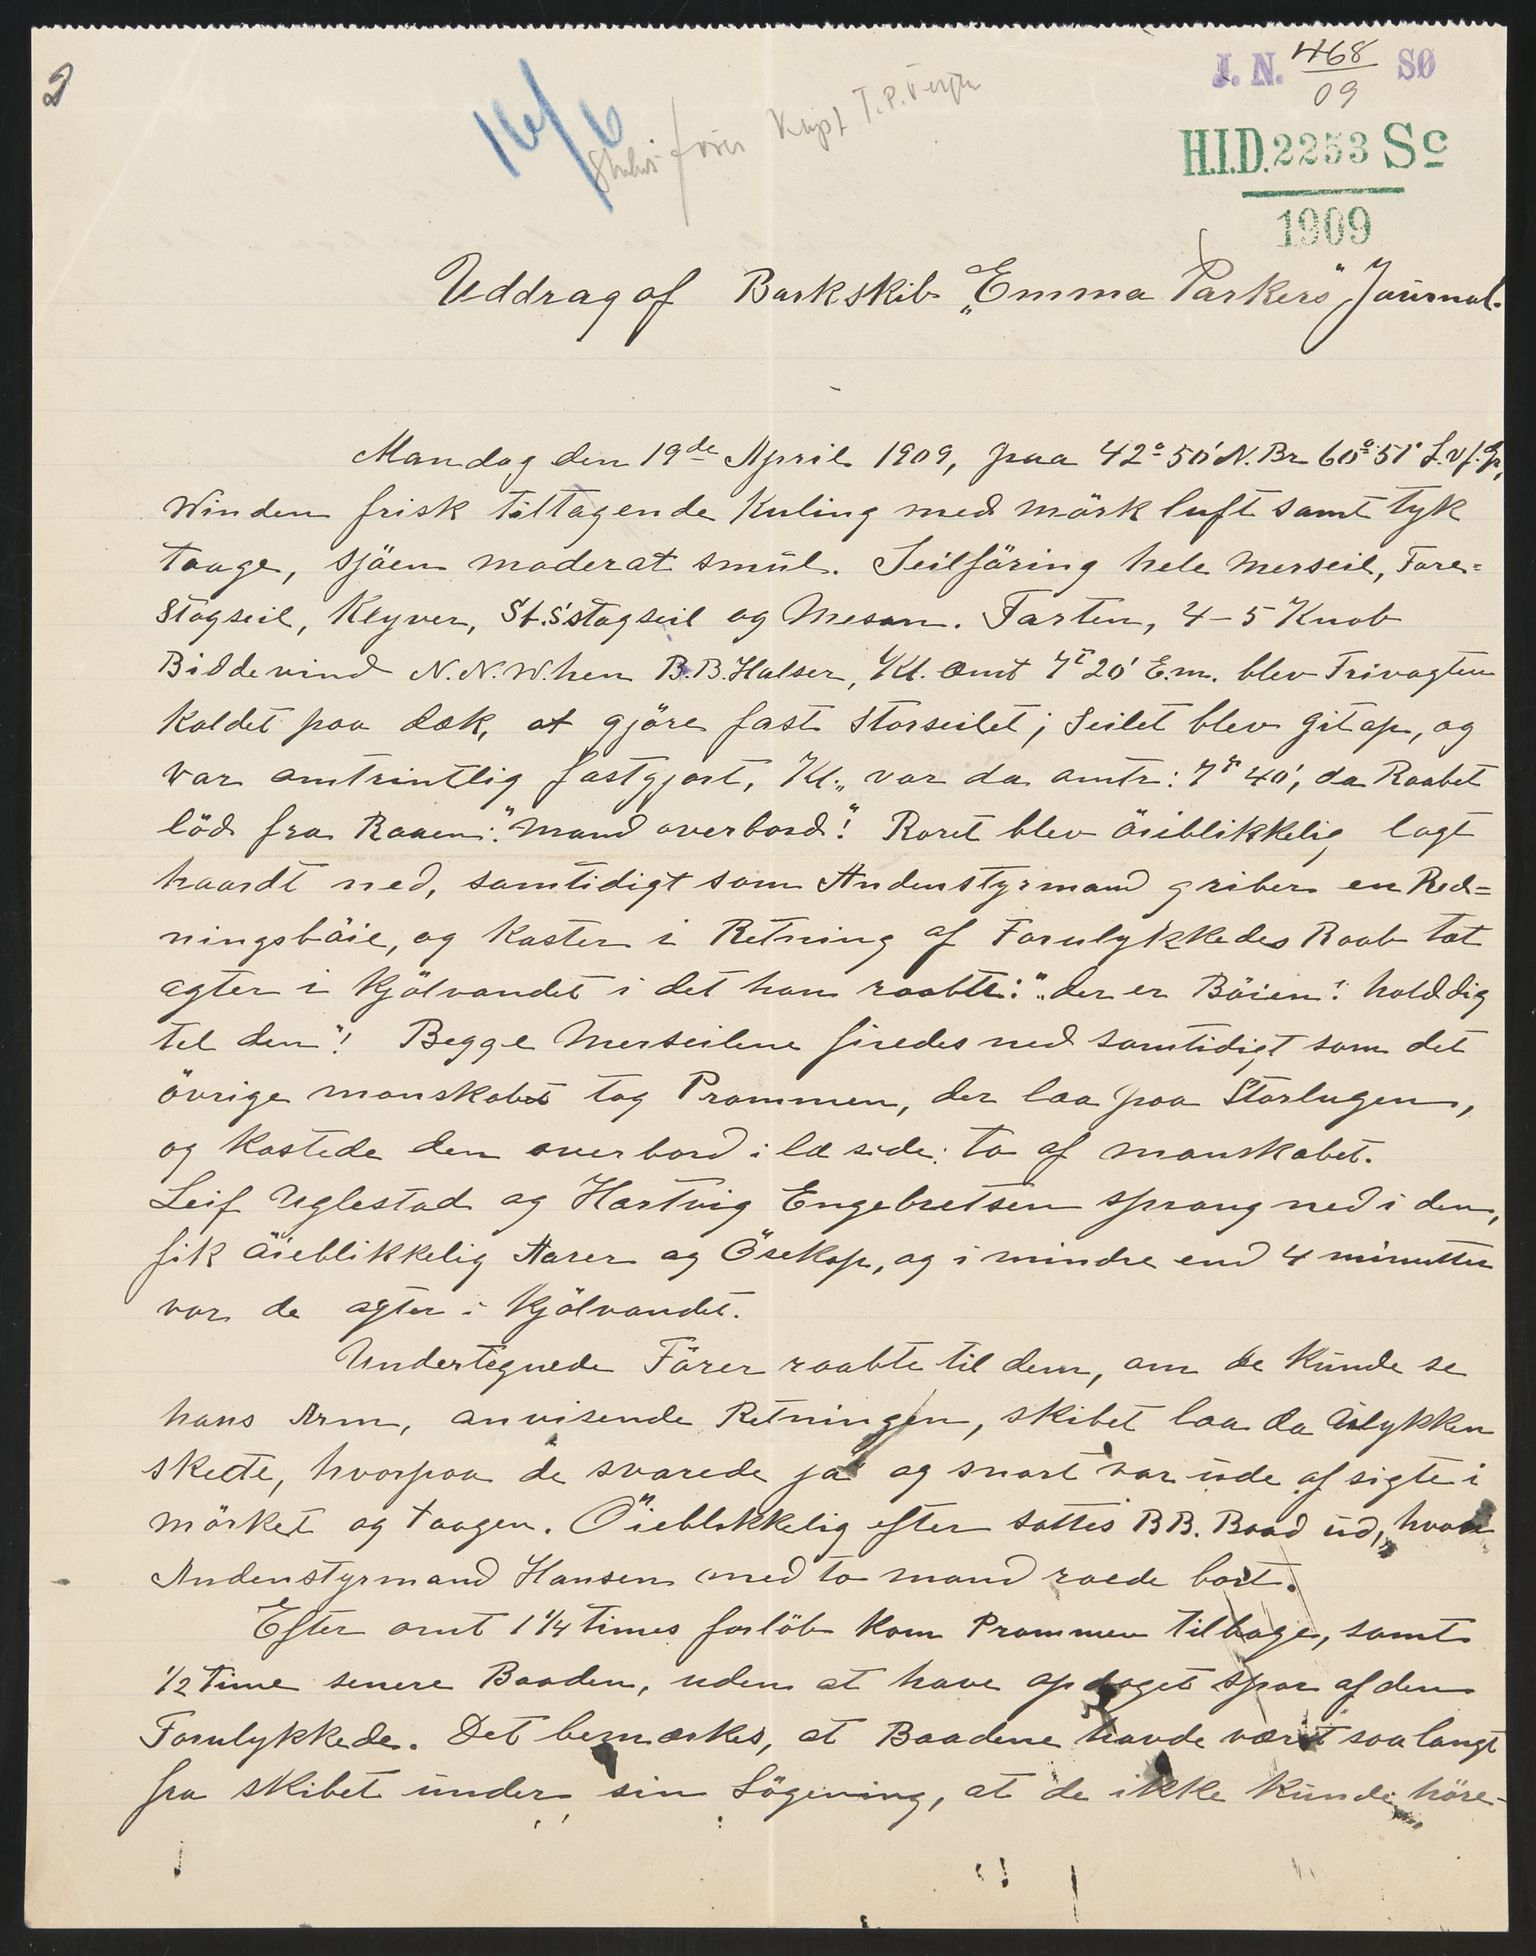 2
16/6
J. N. 468 SØ
09
H.I.D. 2253 Sc
1909
Uddrag af Barkskib „Emma Parkers" Journal.
Mandag den 19de April 1909, paa 42° 50' N. Br 60° 51' L. v f. Gr,
Winden frisk tiltagende Kuling med mörk luft samt tyk
taage, sjöen moderat smul. Seilföring hele Merseil, Fore=
Stagseil, Klyver, St.S'stagseil og Mesan. Farten, 4-5 Knob
Bidevind N.N.W. hen B.B. Halser, Kl. omt 7t 20' E.m. blev Frivagten
Kaldet paa dæk, at gjöre fast Storseilet; Seilet blev gitop, og
var omtrintlig fastgjort, Kl. var da omtr: 7t 40', da Raabet
löd fra Raaen: "Mand overbord"! Roret blev öieblikkelig lagt
haardt ned, samtidigt som Andenstyrmand griber en Red=
ningsböie, og kaster i Retning af Forulykkedes Raab tæt
agter i kjölvandet i det han raabte: "der er Böien! hold dig
til den"! Begge Merseilene firedes ned samtidigt som det
övrige manskabet tog Prammen, der laa paa Storlugen,
og kastede den overbord i læ side: to af manskabet.
Leif Uglestad og Hartvig Engebretsen sprang ned i den,
fik öieblikkelig Aarer og Ösekop, og i mindre end 4 minutter
var de agter i kjölvandet.
Undertegnede Förer raabte til dem, om de kunde se
hans Arm, anvisende Retningen, skibet laa da Ulykken
skede, hvorpaa de svarede ja og snart var ude af sigte i
mörket og taagen. Öieblikkelig efter sattes BB. Baad ud, hvori
Andenstyrmand Hansen med to mand roede bort.
Efter omt 1¼ times forlöb kom Prammen tilbage, samt
½ time senere Baaden, uden at have opdaget spor af den
Forulykkede. Det bemærkes, at Baadene havde været saa langt
fra skibet under sin Sögening, at de ikke kunde höre